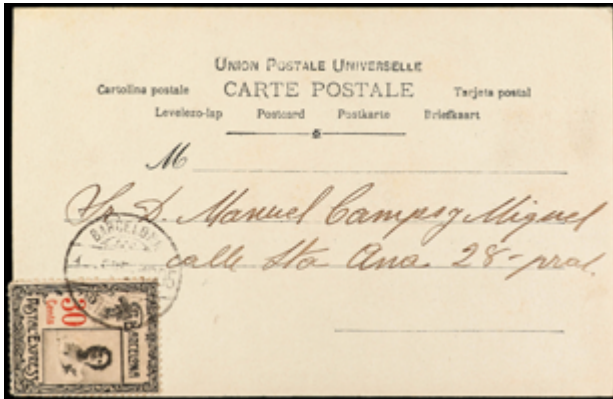 UNION POSTALE UNIVERSELLE
CARTE POSTALE
Cartolina postale
Tarjeta postal
Levelezo-lap Postcard Postkarte Briefkaart
M
Sr. D. Manuel Campsy Miguel
calle Sta Ana. 28-pral.
BARCELONA
30
BARCELONA
POSTAL EXPRESS